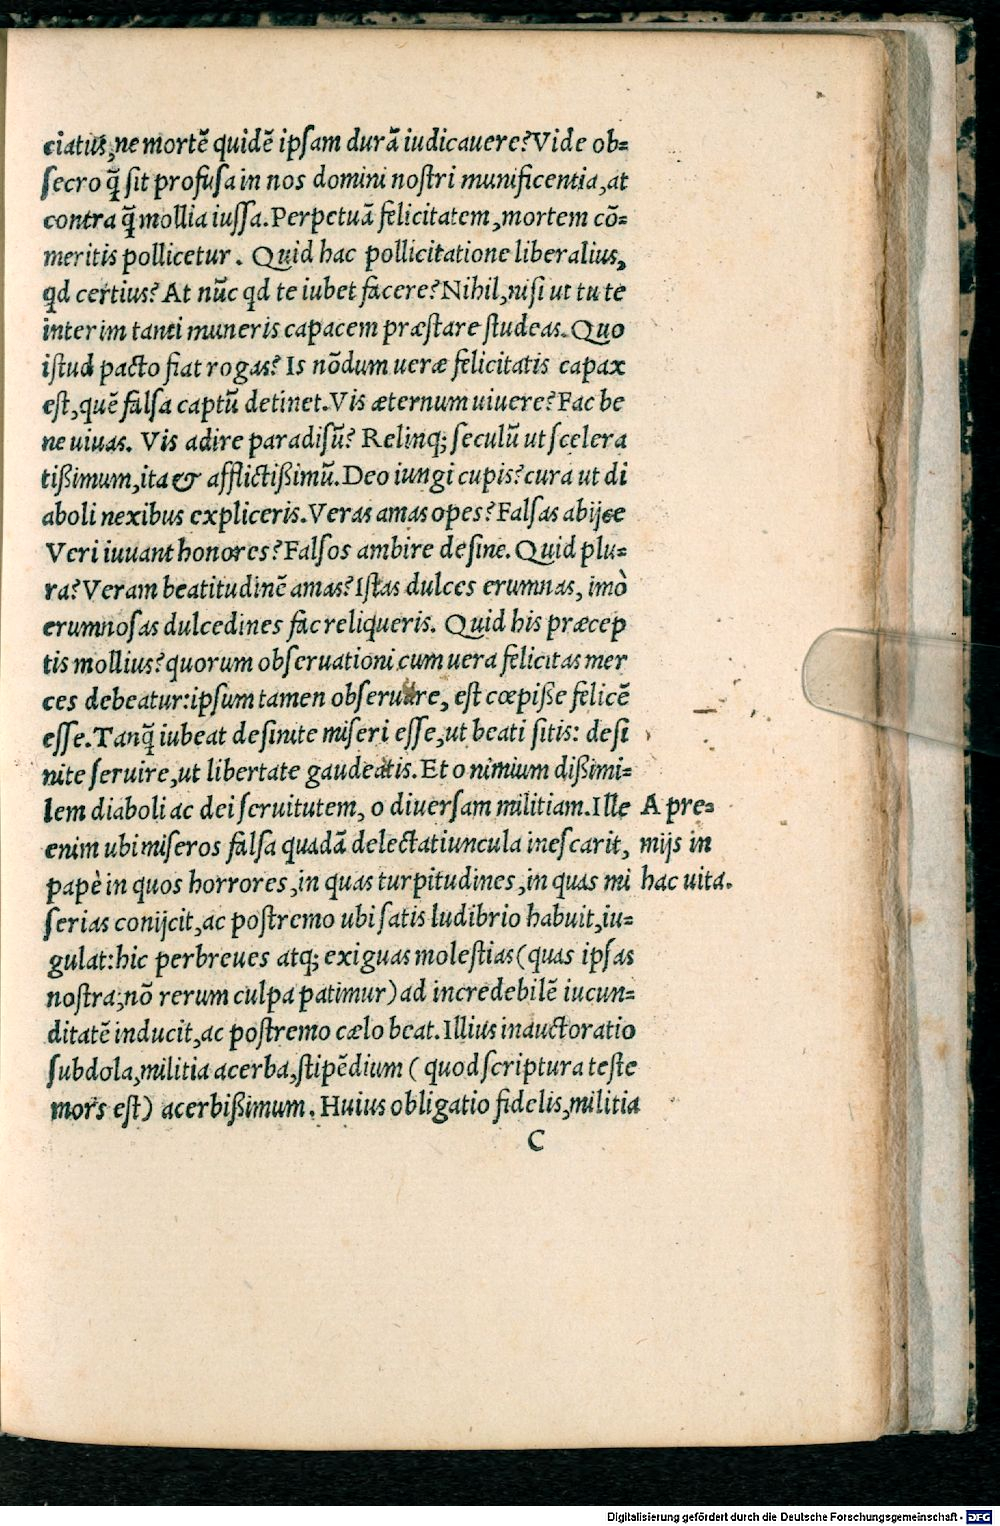 ciatus, ne mortē quidē ipsam durā iudicauere? Vide ob=
secro q̃ sit profusa in nos domini nostri munificentia, at
contra q̃ mollia iussa. Perpetuā felicitatem, mortem cō=
meritis pollicetur. Quid hac pollicitatione liberalius,
qd certius? At nūc qd te iubet facere? Nihil, nisi ut tu te
interim tanti muneris capacem præstare studeas. Quo
istud pacto fiat rogas? Is nōdum ueræ felicitatis capax
est, quē falsa captū detinet. Vis æternum uiuere? Fac be
ne uiuas. Vis adire paradisū? Relinq; seculū ut scelera
tißimum, ita & afflictißimū. Deo iungi cupis? cura ut di
aboli nexibus expliceris. Veras amas opes? Falsas abijce
Veri iuuant honores? Falsos ambire desine. Quid plu=
ra? Veram beatitudinē amas? Istas dulces erumnas, imò
erumnosas dulcedines fac reliqueris. Quid his præcep
tis mollius? quorum obseruationi cum uera felicitas mer
ces debeatur: ipsum tamen obseruare, est cœpiße felicē
esse. Tanq̃ iubeat desinite miseri esse, ut beati sitis: desi
nite seruire, ut libertate gaudeatis. Et o nimium dißimi=
lem diaboli ac dei seruitutem, o diuersam militiam. Ille A pre=
enim ubi miseros falsa quadā delectatiuncula inescarit, mijs in
papè in quos horrores, in quas turpitudines, in quas mi hac uita.
serias conijcit, ac postremo ubi satis ludibrio habuit, iu=
gulat: hic perbreues atq; exiguas molestias (quas ipsas
nostra, nō rerum culpa patimur) ad incredebilē iucun=
ditatē inducit, ac postremo cælo beat. Illius inauctoratio
subdola, militia acerba, stipēdium ( quod scriptura teste
mors est) acerbißimum. Huius obligatio fidelis, militia
C
Digitalisierung gefördert durch die Deutsche Forschungsgemeinschaft - DFG